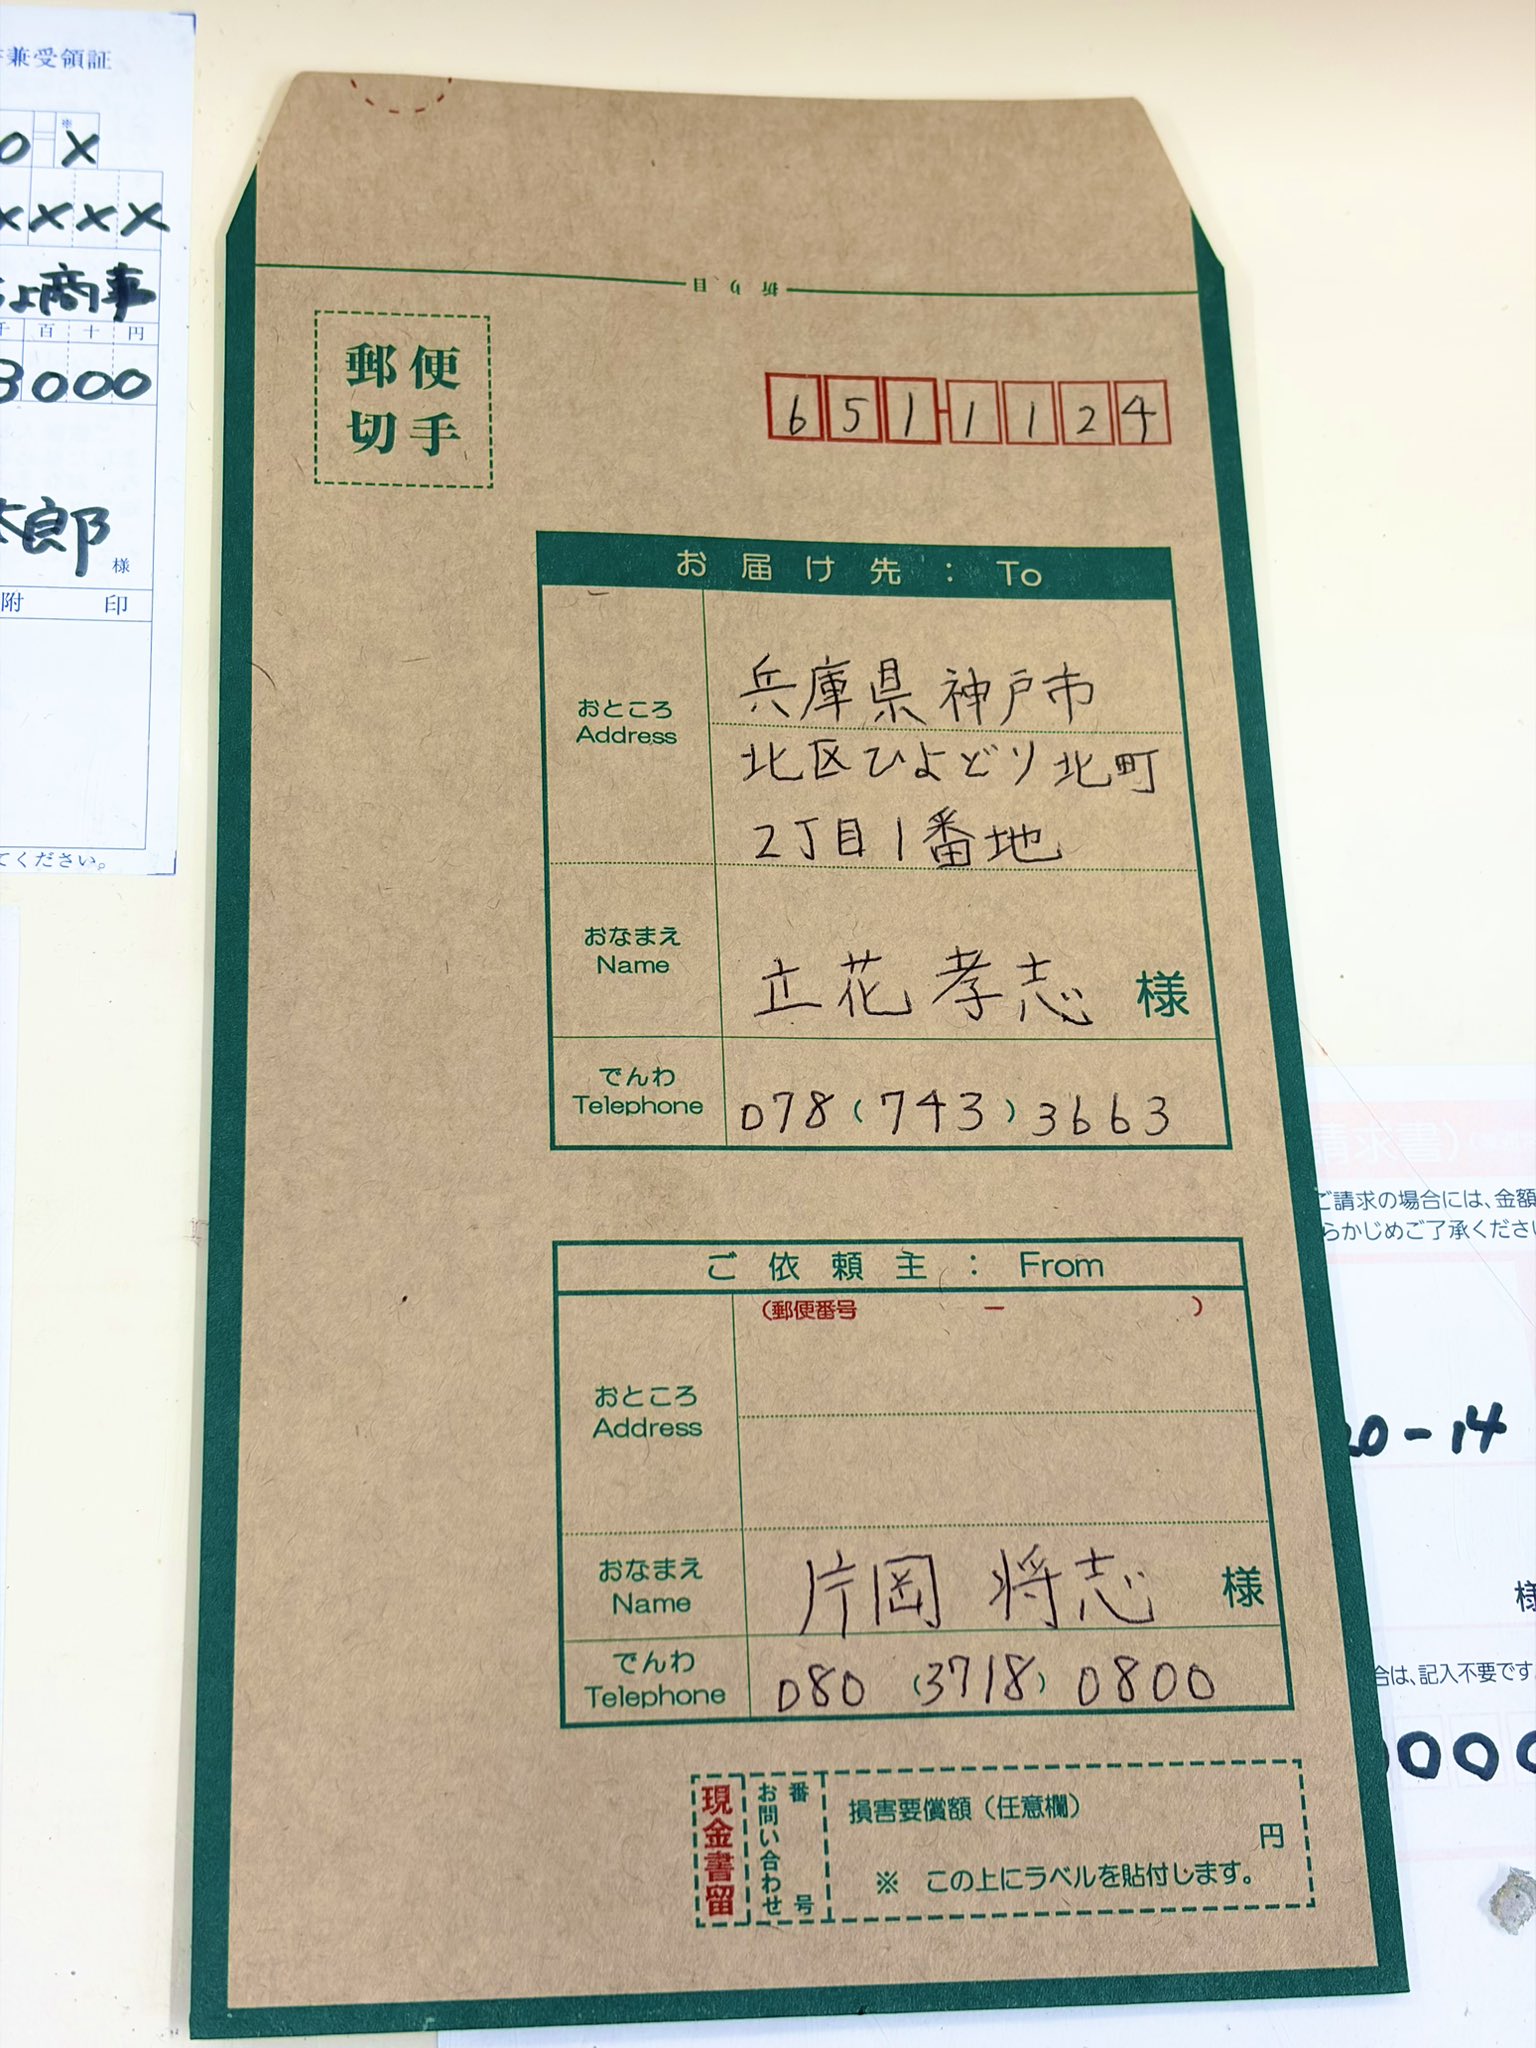 兼受領証
0 ※ X
XXXX
商事
千 百 十 円
3000
太郎 様
附 印
てください。
折り目
郵便
切手
651-1124
お届け先：To
おところ
Address
兵庫県神戸市
北区ひよどり北町
2丁目1番地
おなまえ
Name
立花 孝志 様
でんわ
Telephone
078(743)3663
ご依頼主：From
(郵便番号 ー )
おところ
Address
おなまえ
Name
片岡 将志 様
でんわ
Telephone
080(3718)0800
現金書留
お問い合わせ
番号
損害要償額（任意欄）
円
※ この上にラベルを貼付します。
ご請求の場合には、金額
らかじめご了承くださ
20-14
様
合は、記入不要です
000